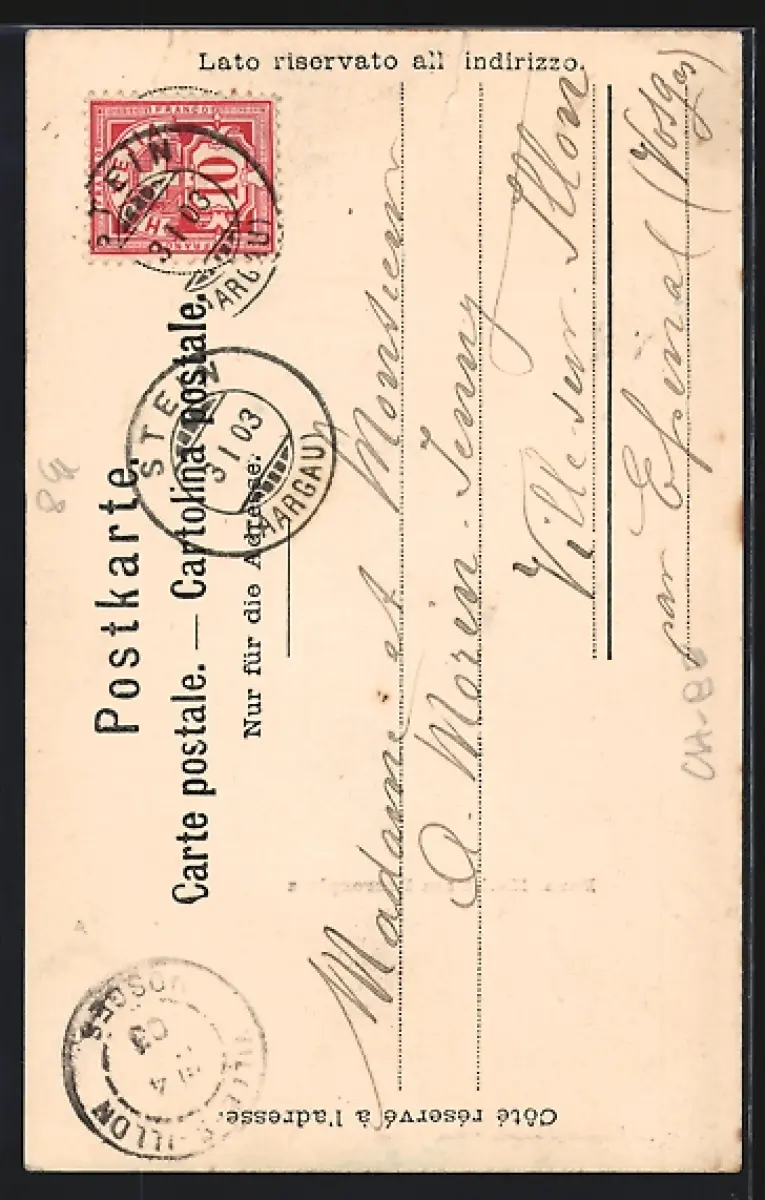 Lato riservato all indirizzo.
FRANCO
10
STEIN
3 I 03
(AARGAU)
Postkarte.
Carte postale. — Cartolina postale.
Nur für die Adresse.
STEIN
3 I 03
(AARGAU)
Madame et Monsieur
A. Morin-Jenny
Ville sur-Illon
par Epinal (Vosges)
CH-85
VILLE-S-ILLON
4
03
VOSGES
Côté réservé à l'adresse.